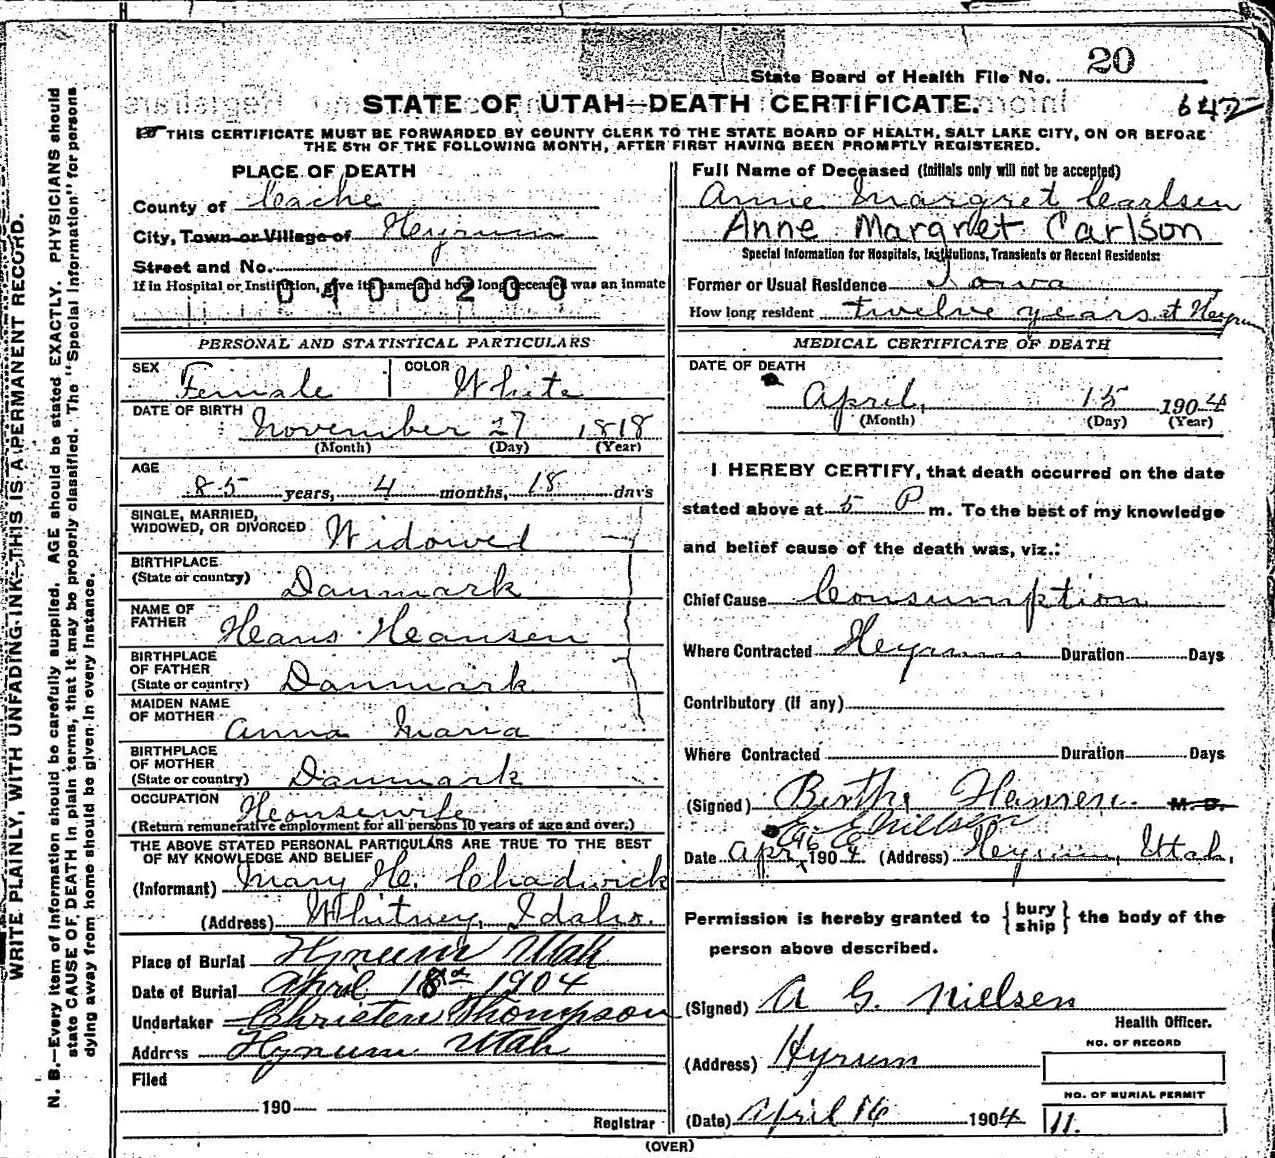 20
State Board of Health File No.
STATE OF UTAH—DEATH CERTIFICATE.
642
THIS CERTIFICATE MUST BE FORWARDED BY COUNTY CLERK TO THE STATE BOARD OF HEALTH, SALT LAKE CITY, ON OR BEFORE
THE 5TH OF THE FOLLOWING MONTH, AFTER FIRST HAVING BEEN PROMPTLY REGISTERED.
WRITE PLAINLY, WITH UNFADING INK—THIS IS A PERMANENT RECORD.
N. B.—Every item of information should be carefully supplied. AGE should be stated EXACTLY. PHYSICIANS should
state CAUSE OF DEATH in plain terms, that it may be properly classified. The "Special Information" for persons
dying away from home should be given in every instance.
PLACE OF DEATH
County of Cache
City, Town or Village of Heyrum
Street and No.
If in Hospital or Institution, give its name and how long deceased was an inmate
0400200
PERSONAL AND STATISTICAL PARTICULARS
SEX Female COLOR White
DATE OF BIRTH
November 27 1818
(Month) (Day) (Year)
AGE
85 years, 4 months, 18 days
SINGLE, MARRIED,
WIDOWED, OR DIVORCED Widowed
BIRTHPLACE
(State or country) Danmark
NAME OF
FATHER Heans Heansen
BIRTHPLACE
OF FATHER
(State or country) Danmark
MAIDEN NAME
OF MOTHER Anna Maria
BIRTHPLACE
OF MOTHER
(State or country) Danmark
OCCUPATION Heousewife
(Return remunerative employment for all persons 10 years of age and over.)
THE ABOVE STATED PERSONAL PARTICULARS ARE TRUE TO THE BEST
OF MY KNOWLEDGE AND BELIEF
(Informant) Mary He. Chadwick
(Address) Whitney, Idaho.
Place of Burial Hyrum Utah
Date of Burial April 18th 1904
Undertaker Christen Thompson
Address Hyrum Utah
Filed
190
Registrar
Full Name of Deceased (Initials only will not be accepted)
Annie Margret Carlsen
Anne Margret Carlson
Special Information for Hospitals, Institutions, Transients or Recent Residents:
Former or Usual Residence Iowa
How long resident twelve years at Heyrum
MEDICAL CERTIFICATE OF DEATH
DATE OF DEATH
April, 15 1904
(Month) (Day) (Year)
I HEREBY CERTIFY, that death occurred on the date
stated above at 5 P m. To the best of my knowledge
and belief cause of the death was, viz.:
Chief Cause Consumption
Where Contracted Heyrum Duration Days
Contributory (if any)
Where Contracted Duration Days
(Signed) Berthe Hansen M. D.
Nielsen
Date Apr 16 1904 (Address) Heyrum, Utah,
Permission is hereby granted to {bury ship} the body of the
person above described.
(Signed) A G. Nielsen
Health Officer.
(Address) Hyrum
NO. OF RECORD
NO. OF BURIAL PERMIT
(Date) April 16 1904 11.
(OVER)